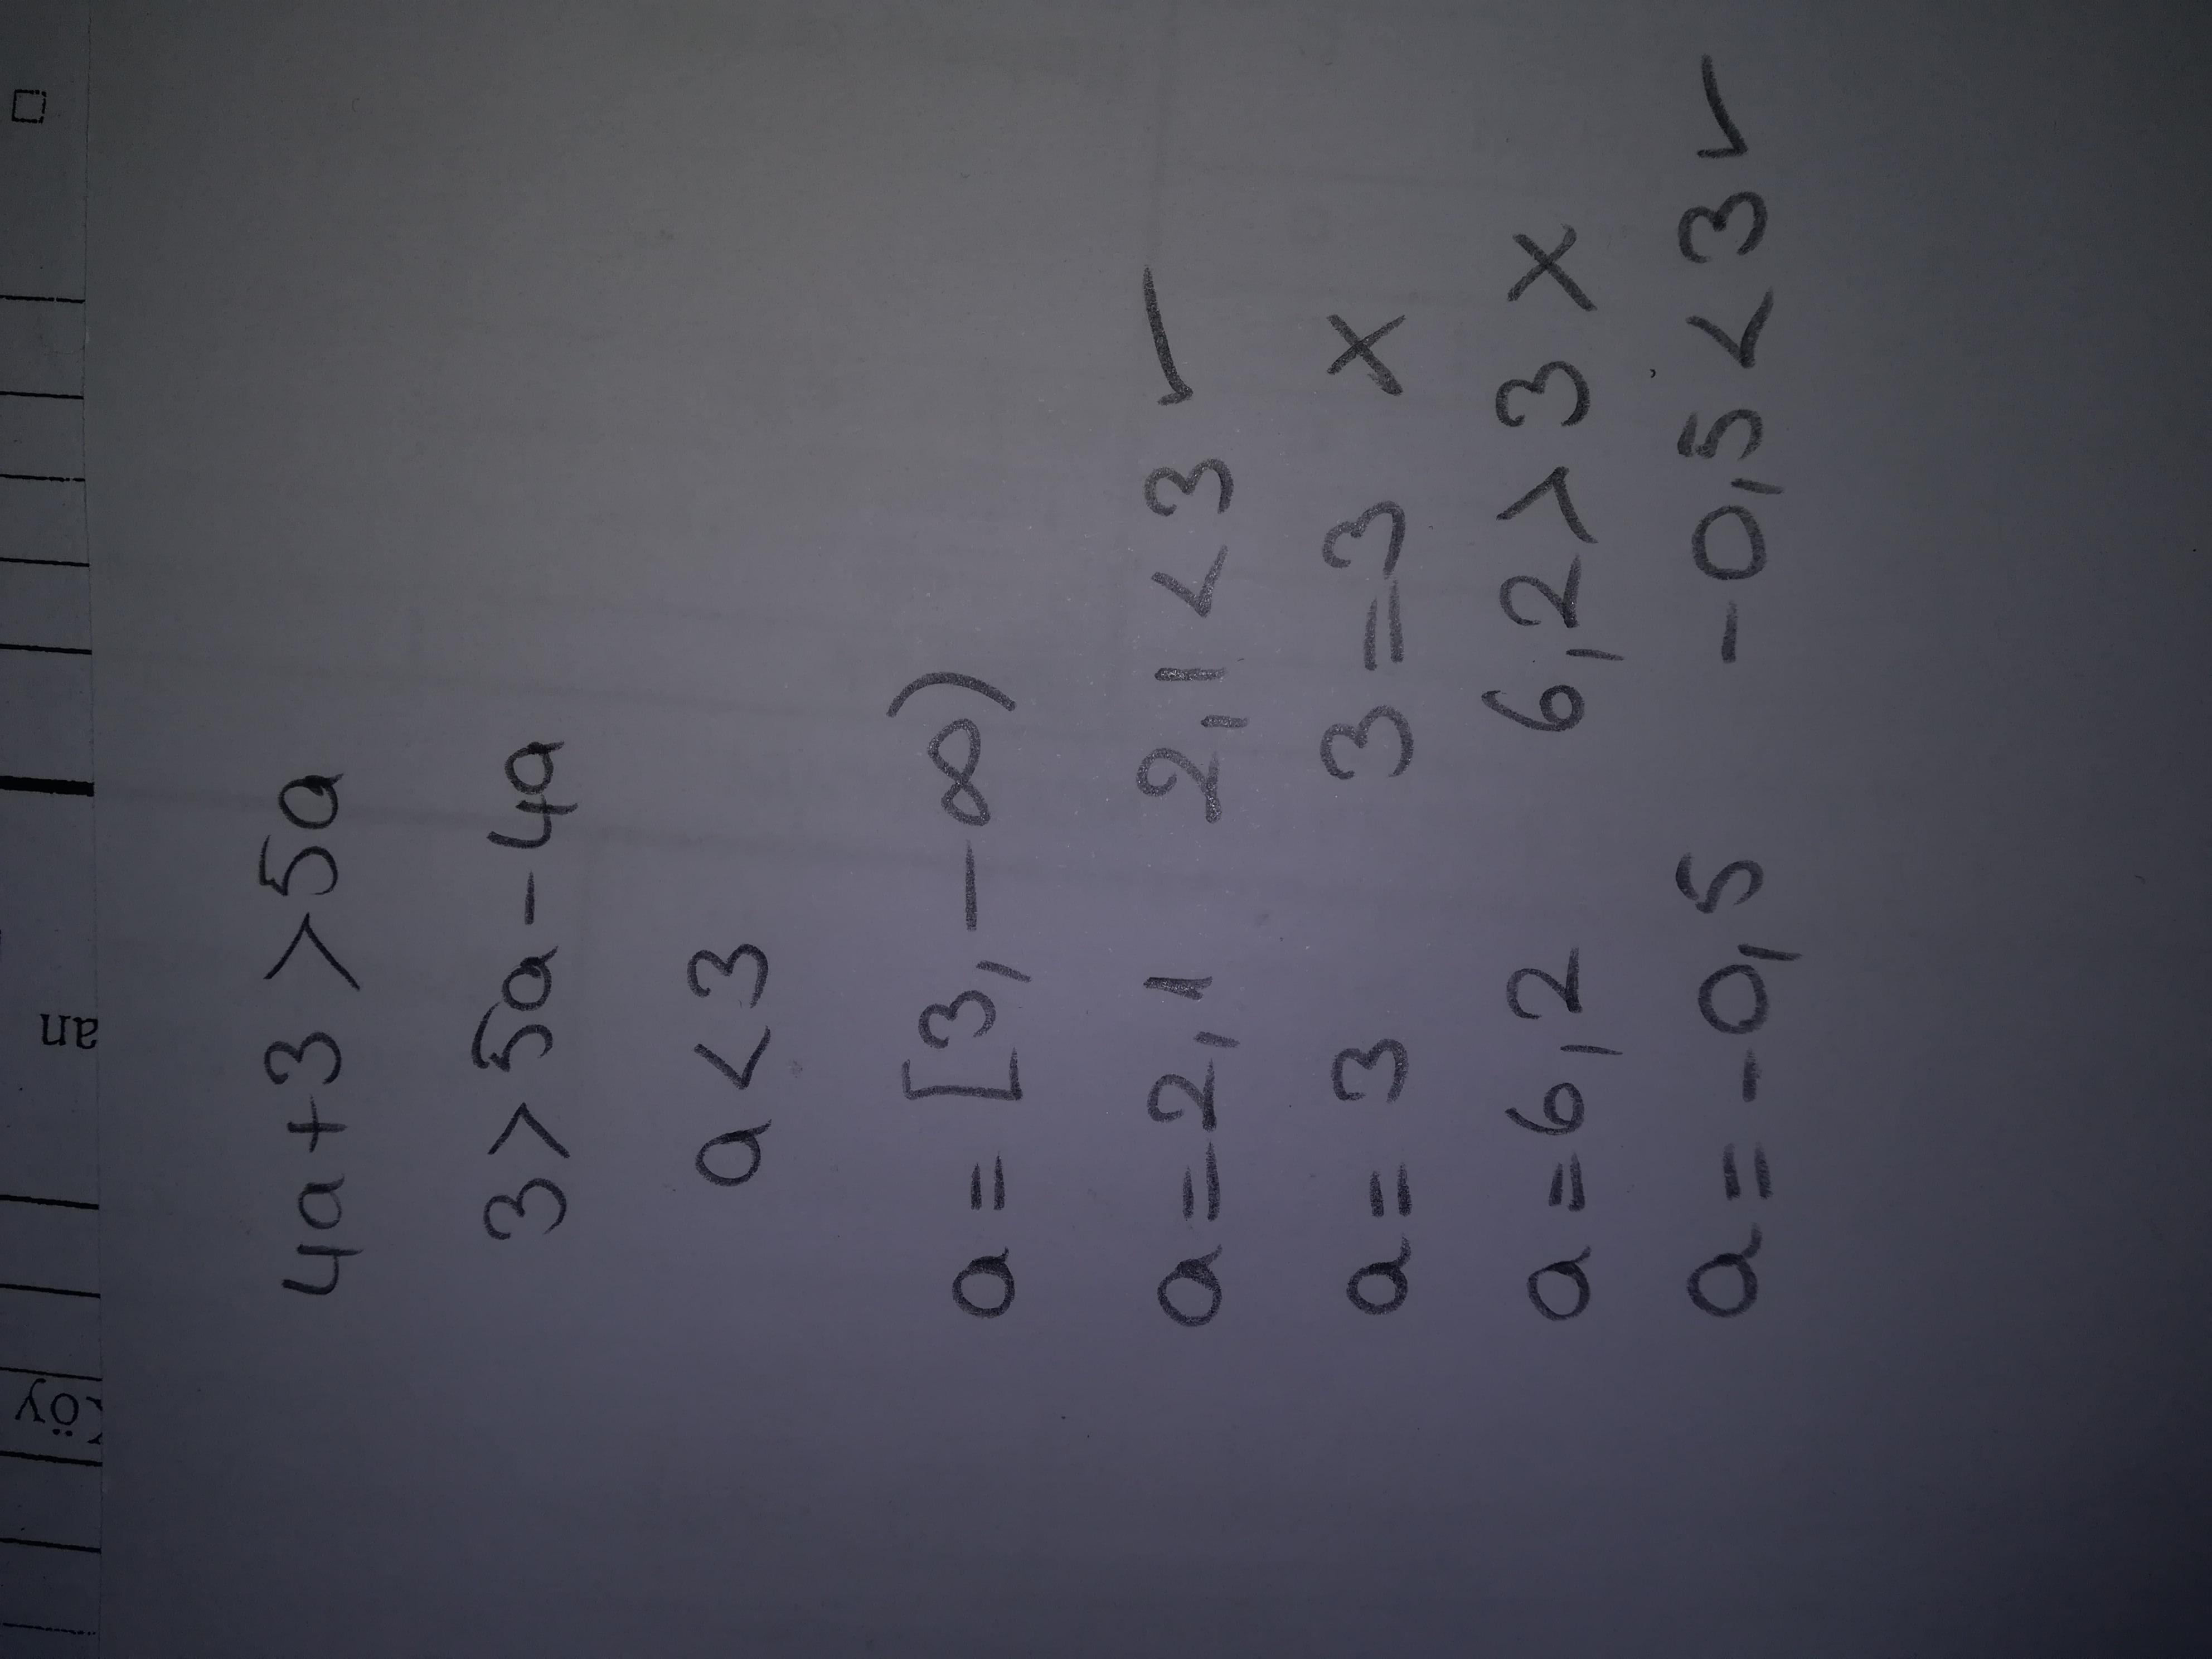 4a+3>5a
3>5a-4a
a<3
a=[3,-∞)
a=2,1 2,1<3 ✓
a=3 3=3 x
a=6,2 6,2>3 x
a=-0,5 -0,5<3 ✓
an